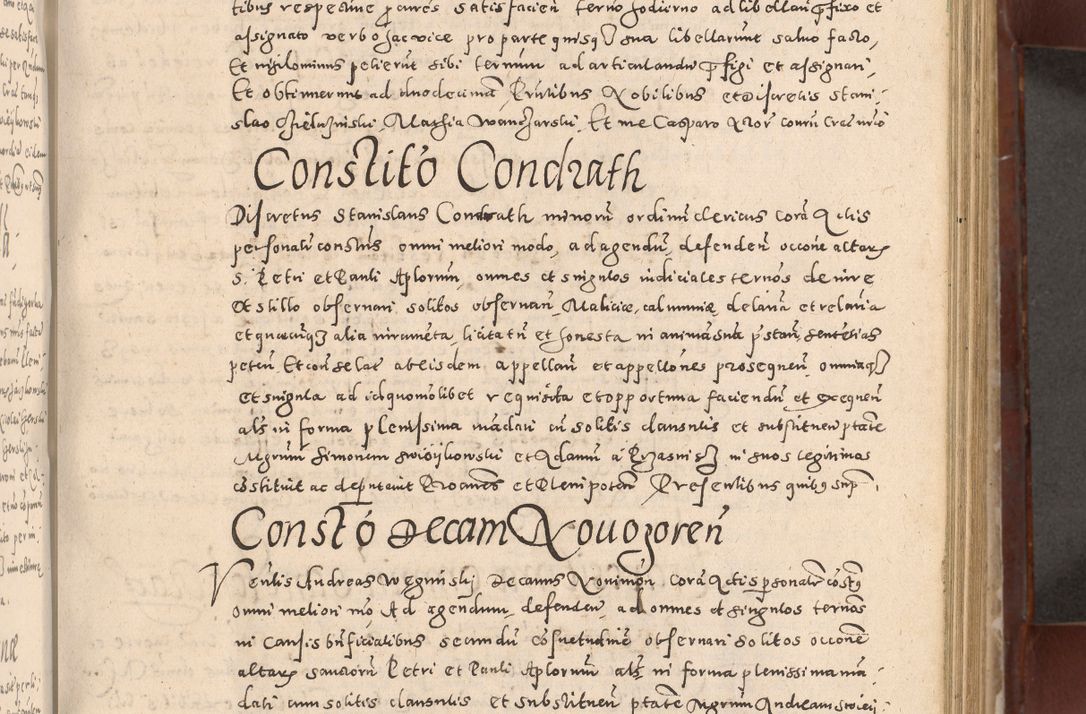 tibus respective partes satisfacien termo hodierno ad libellan prefixo et
assignato verbo hac vice pro parte quisque sua libellarunt salvo facto,
Et nihilominus petierunt sibi terminum ad articulandum prefigi et assignari,
Et obtinuerunt ad duodecimam, Presentibus Nobilibus et Discretis Stani-
slao Mathia Et me Casparo Notor
Constito Condrath
Discretus Stanislaus Condrath minorum ordinum clericus coram Actis
personaliter constitus omni meliori modo, ad agendum, defenden occone altaris
S. Petri et Pauli Aplorum, omnes et singulos iudiciales terminos de iure
Et stillo observari solitos observan, Maliciæ, calumniæ delatam et relatum
et quæcunque alia iuramenta, licita tn et honesta in animam sua pstan, sententias
peten, Et con se lat ab eisdem appellan et appellones prosequen, omniaque
et singula ad id quomolibet requisita et opportuna faciendum et exequen
als in forma plenissima mandati cum solitis clausulis et substituen ptate
Mgrum Simonem et Adamum a in suos legitimos
constituit ac deputavit Procuratores et Plenipoten Presentibus quibus sup
Constto Decam Novogoren
Venlis Andreas Decanus coram Actis personaliter constus
omni meliori mo Ad agendum, defenden, ad omnes et singulos terminos
in Causis bnficialibus secundum consuetudinem observari solitos occone
altaris sanctorum Petri et Pauli Aplorum als in forma plenissima man-
dati cum solitis clausulis et substituen ptate Mgrum Andream